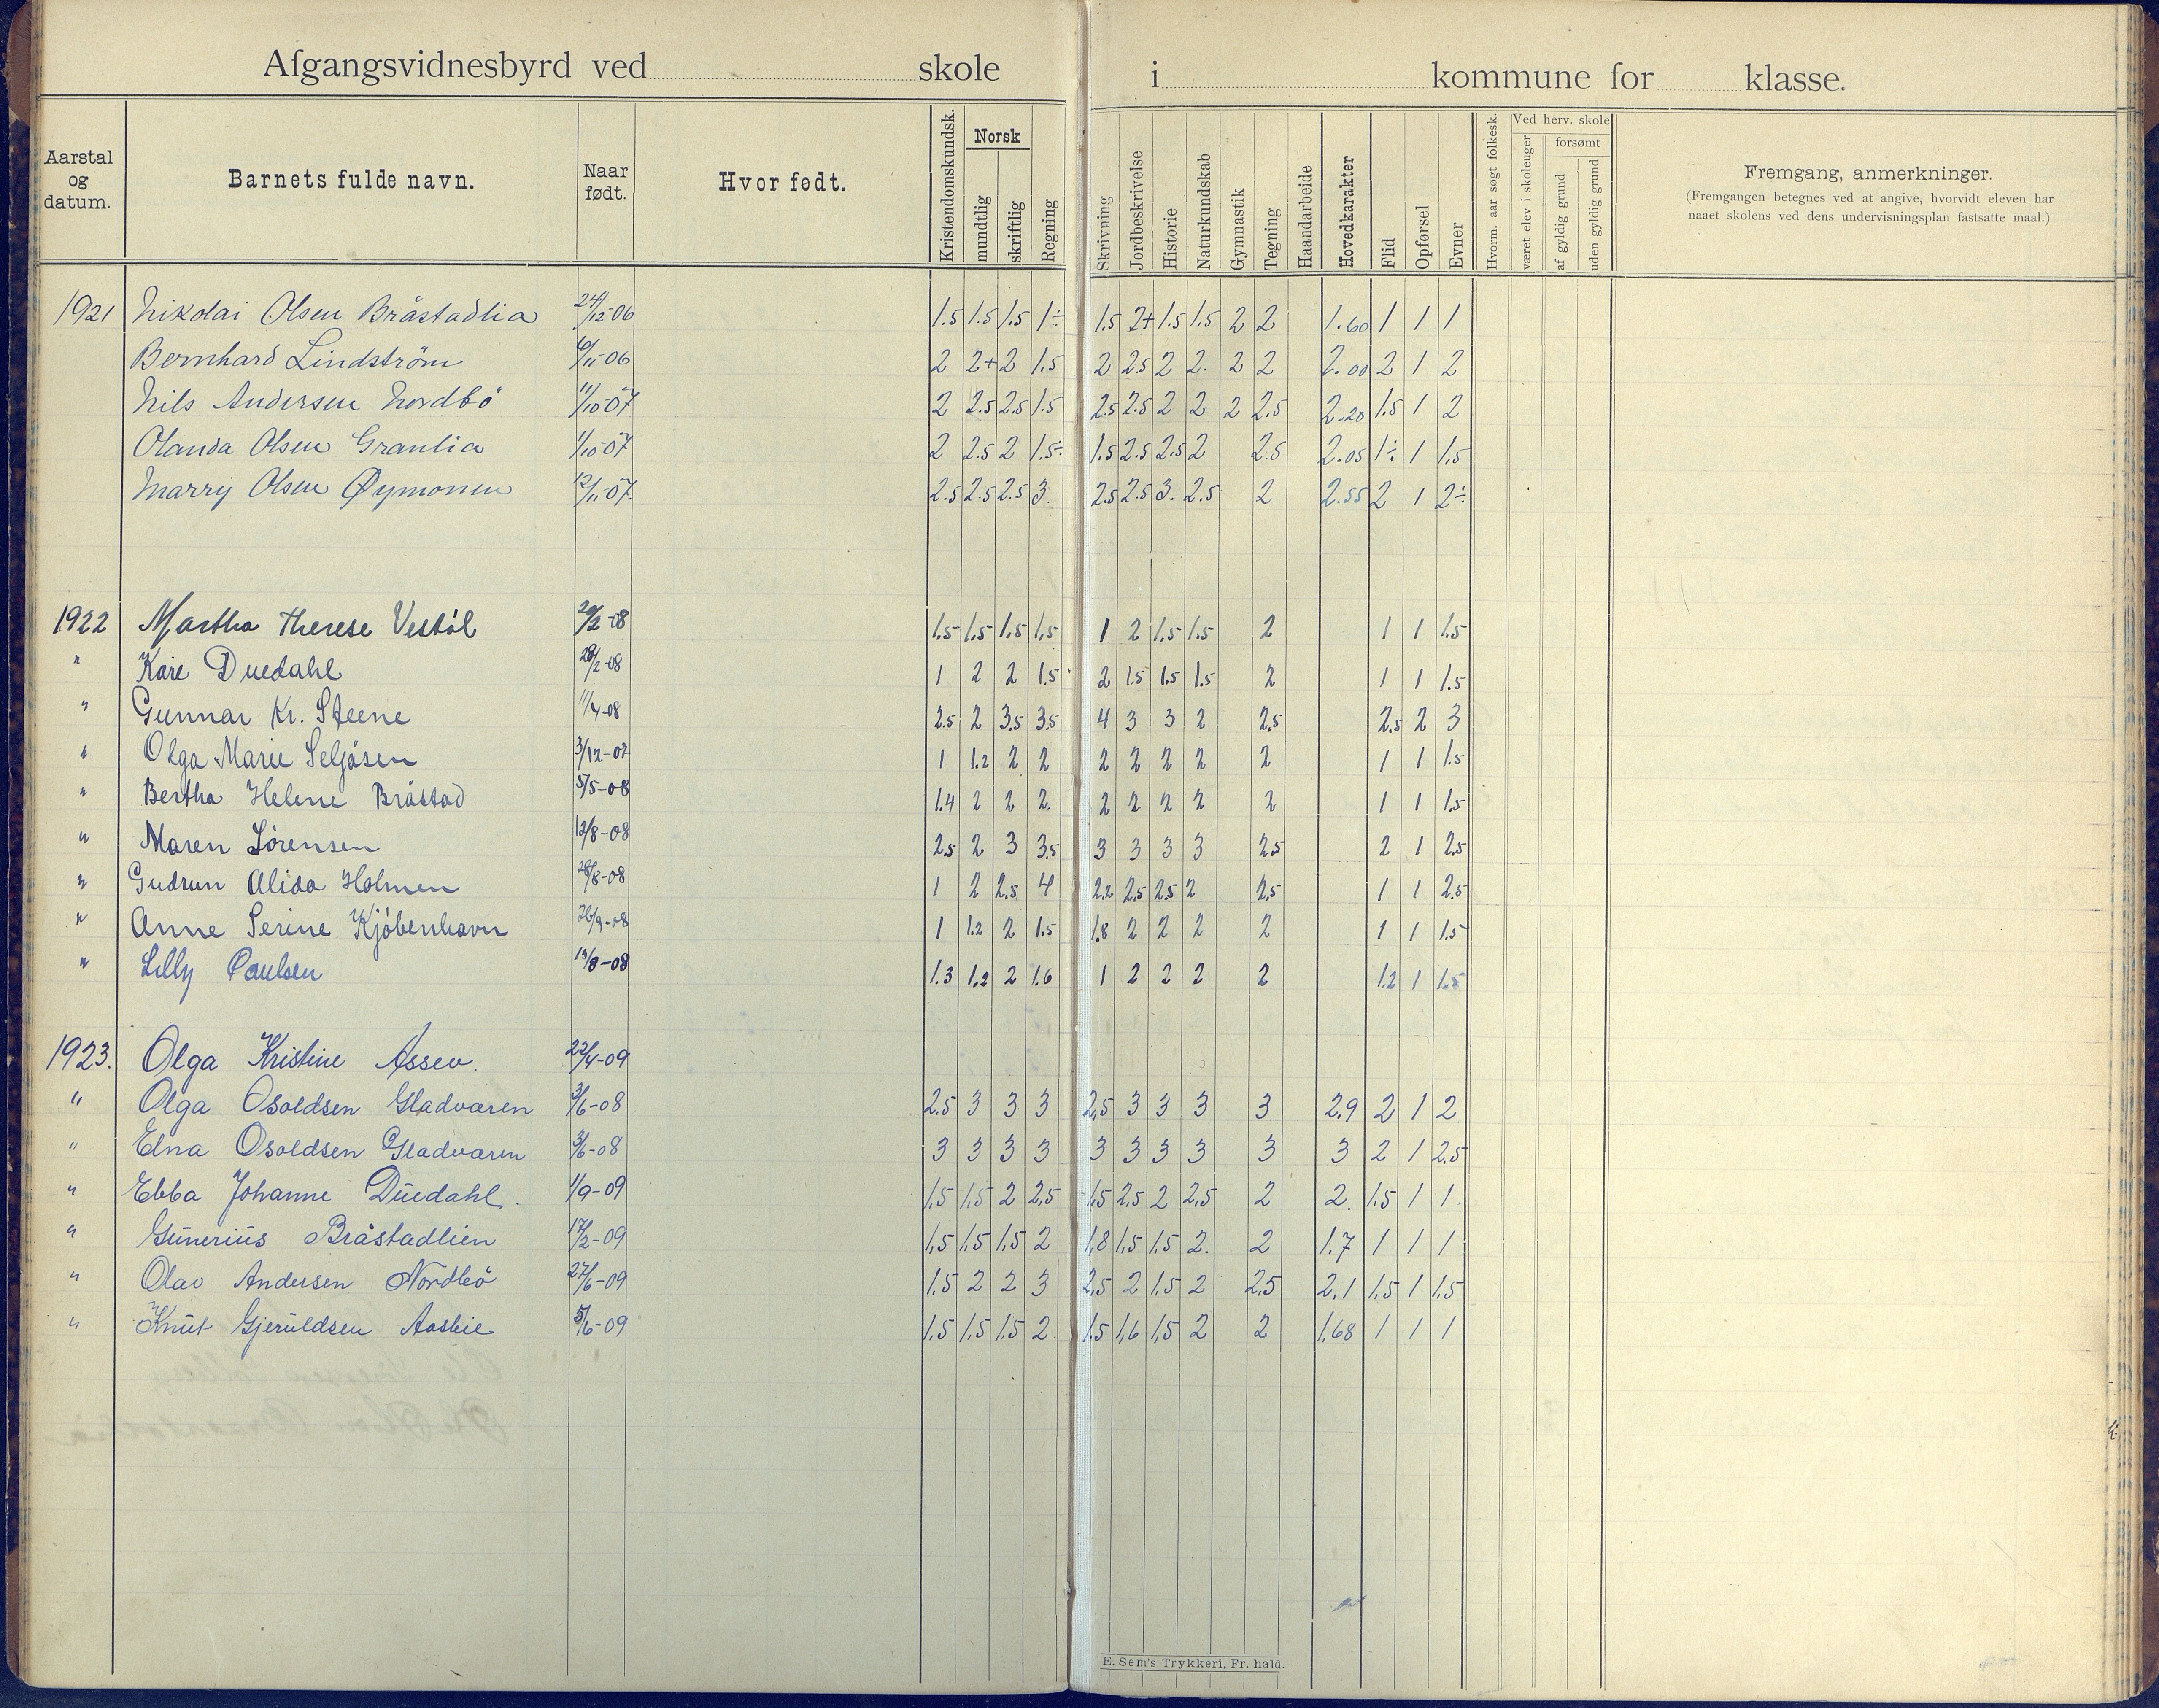 Afgangsvidnesbyrd ved skole i kommune for klasse.
Aarstal og datum. Barnets fulde navn. Naar født. Hvor født. Kristendomskundsk. Norsk mundtlig skriftlig Regning Skrivning Jordbeskrivelse Historie Naturkundskab Gymnastik Tegning Haandarbeide Hovedkarakter Flid Opførsel Evner Hvorm. aar søgt folkesk. Ved herv. skole været elev i skoleuger forsømt af gyldig grund uden gyldig grund Fremgang, anmerkninger.
(Fremgangen betegnes ved at angive, hvorvidt eleven har
naaet skolens ved dens undervisningsplan fastsatte maal.)
1921 Nikolai Olsen Bråstadlia 24/12-06 1.5 1.5 1.5 1÷ 1.5 2+ 1.5 1.5 2 2 1.60 1 1 1
Bernhard Lindström 6/11-06 2 2+ 2 1.5 2 2.5 2 2. 2 2 2.00 2 1 2
Nils Andersen Nordbö 11/10-07 2 2.5 2.5 1.5 2.5 2.5 2 2 2 2.5 2.20 1.5 1 2
Olanda Olsen Granlia 1/10-07 2 2.5 2 1.5÷ 1.5 2.5 2.5 2 2.5 2.05 1÷ 1 1.5
Marry Olsen Øymonen 12/11-07. 2.5 2.5 2.5 3. 2.5 2.5 3. 2.5 2 2.55 2 1 2÷
1922 Martha Therese Vestöl 20/2-08 1.5 1.5 1.5 1.5 1 2 1.5 1.5 2 1 1 1.5
" Kåre Duedahl 28/2-08 1 2 2 1.5 2 1.5 1.5 1.5 2 1 1 1.5
" Gunnar Kr. Steene 11/4-08 2.5 2 3.5 3.5 4 3 3 2 2.5 2.5 2 3
" Olga Marie Seljåsen 3/12-07 1 1.2 2 2 2 2 2 2 2 1 1 1.5
" Bertha Helene Bråstad 5/5-08 1.4 2 2 2. 2 2 2 2 2 1 1 1.5
" Maren Sörensen 12/8-08 2.5 2 3 3.5 3 3 3 3 2.5 2 1 2.5
" Gudrun Alida Holmen 28/8-08 1 2 2.5 4 2.2 2.5 2.5 2 2.5 1 1 2.5
" Anne Serine Kjöbenhavn 26/9-08 1 1.2 2 1.5 1.8 2 2 2 2 1 1 1.5
" Lilly Paulsen 15/8-08 1.3 1.2 2 1.6 1 2 2 2 2 1.2 1 1.5
1923. Olga Kristine Assev. 22/4-09
" Olga Osoldsen Gladvaren 3/6-08 2.5 3 3 3 2,5 3 3 3 3 2.9 2 1 2
" Edna Osoldsen Gladvaren 3/6-08 3 3 3 3 3 3 3 3 3 3 2 1 2.5
" Ebba Johanne Duedahl. 1/9-09 1,5 1,5 2 2,5 1,5 2,5 2 2,5 2 2. 1.5 1 1.
" Gunerius Bråstadlien 17/2-09 1,5 1.5 1.5 2 1,8 1,5 1,5 2. 2 1.7 1 1 1
" Olav Andersen Nordbö 27/6-09 1.5 2 2 3 2,5 2 1.5 2 2.5 2.1 1.5 1 1.5
" Knut Gjeruldsen Aaslie 5/6-09 1.5 1.5 1.5 2 1.5 1,6 1,5 2 2 1.68 1 1 1
E. Sem's Trykkeri, Fr. hald.